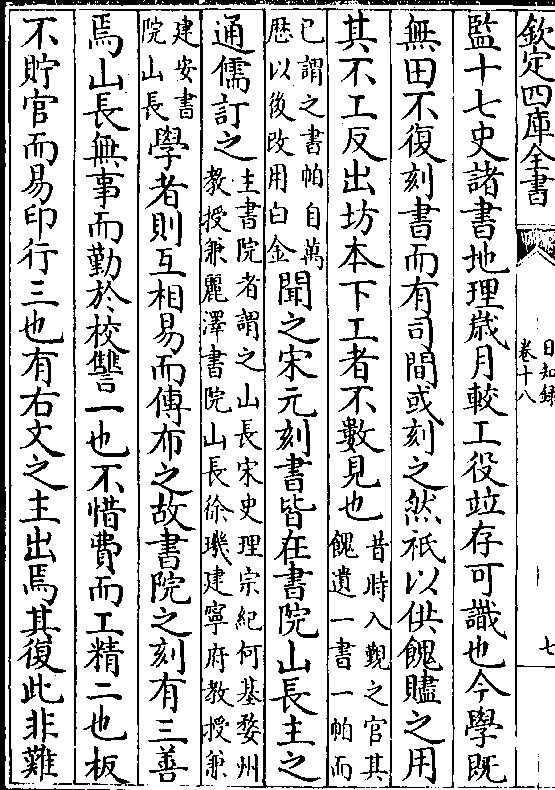 欽定四庫全書
日知録
卷十八
七
監十七史諸書地理嵗月較工役竝存可識也今學既
無田不復刻書而有司間或刻之然祇以供餽贐之用
其不工反出坊本下工者不數見也
昔時入覲之官其
餽遺一書一帕而
已謂之書帕自萬
厯以後改用白金
聞之宋元刻書皆在書院山長主之
通儒訂之
主書院者謂之山長宋史理宗紀何基婺州
教授兼麗澤書院山長徐璣建寧府教授兼
建安書
院山長
學者則互相易而傳布之故書院之刻有三善
焉山長無事而勤於校讐一也不惜費而工精二也板
不貯官而易印行三也有右文之主出焉其復此非難